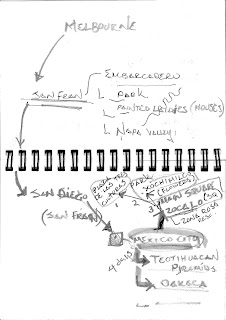 MELBOURNE
EMBARCADERO
SAN FRAN
PARK
PAINTED LADIES (HOUSES)
NAPA VALLEY
SAN DIEGO
(SAN FRAN)
PLAZA TRES
CULTURAS
PARK
XOCHIMILCO
2
3
MAIN SQUARE
ZOCALO
ZONA ROSA
MEXICO CITY
4 DAYS
TEOTIHUACAN
PYRAMIDS
OAXACA